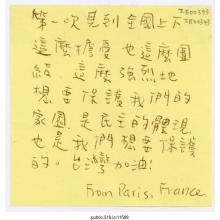 FB00393
FB00393
第一次見到全國上下
這麼擔憂也這麼團
結 這麼強烈地
想要保護我們的
家園是民主的體現
也是我們想要保護
的。台灣加油!
From Paris, France
public.318.io/11589